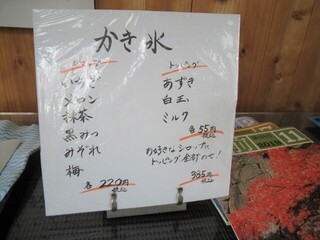 かき氷
シロップ
いちご
メロン
抹茶
黒みつ
みぞれ
梅
各220円
税込
トッピング
あずき
白玉
ミルク
各55円
税込
お好きなシロップに
トッピング全部のせ!
385円
税込